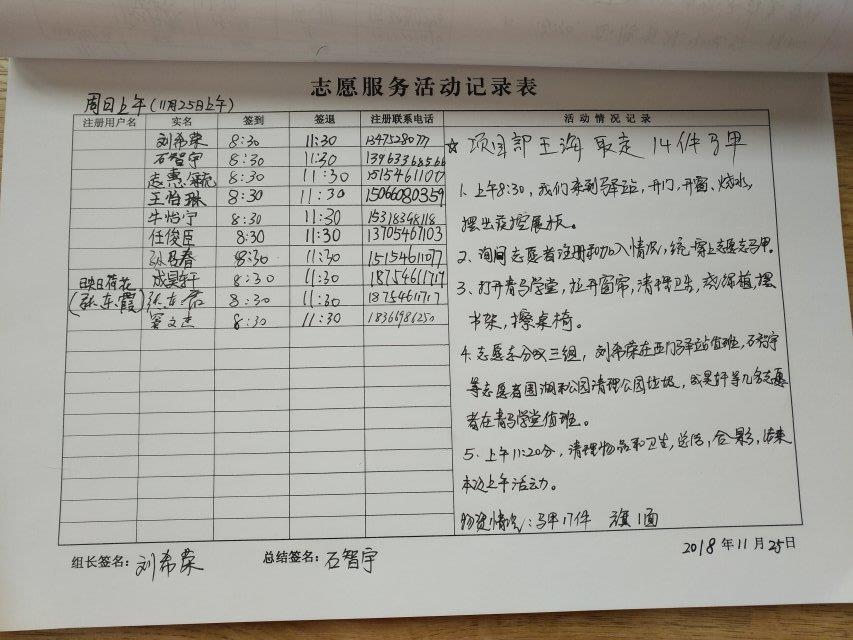 志愿服务活动记录表
周日上午(11月25日上午)
注册用户名 实名 签到 签退 注册联系电话 活动情况记录
刘希荣 8:30 11:30 13475280777
石智宇 8:30 11:30
8:30 11:30 15154611100
王怡琳 8:30 11:30 15066080359
牛怡宁 8:30 11:30 15318348118
任俊臣 8:30 11:30 13705467103
8:30 11:30 15154611077
映日荷花 成昊轩 8:30 11:30 18754611717
(张东霞) 8:30 11:30 18754611717
窦文杰 8:30 11:30 18366986250
☆ 项目部王海取走14件马甲
1. 上午8:30,我们来到驿站,开门、开窗、烧水,
摆出防控展板。
2、询问志愿者注册和加入情况,统一穿上志愿者马甲。
3、打开青马学堂,拉开窗帘,清理卫生,浇绿植,摆
书架,擦桌椅。
4.志愿者分成三组,刘希荣在西门驿站值班,石智宇
等志愿者围湖和公园清理公园垃圾,成昊轩等几名志愿
者在青马学堂值班。
5、上午11:20分,清理物品和卫生,总结,合影,结束
本次上午活动。
物资情况:马甲17件 旗1面
组长签名:刘希荣 总结签名:石智宇 2018年11月25日